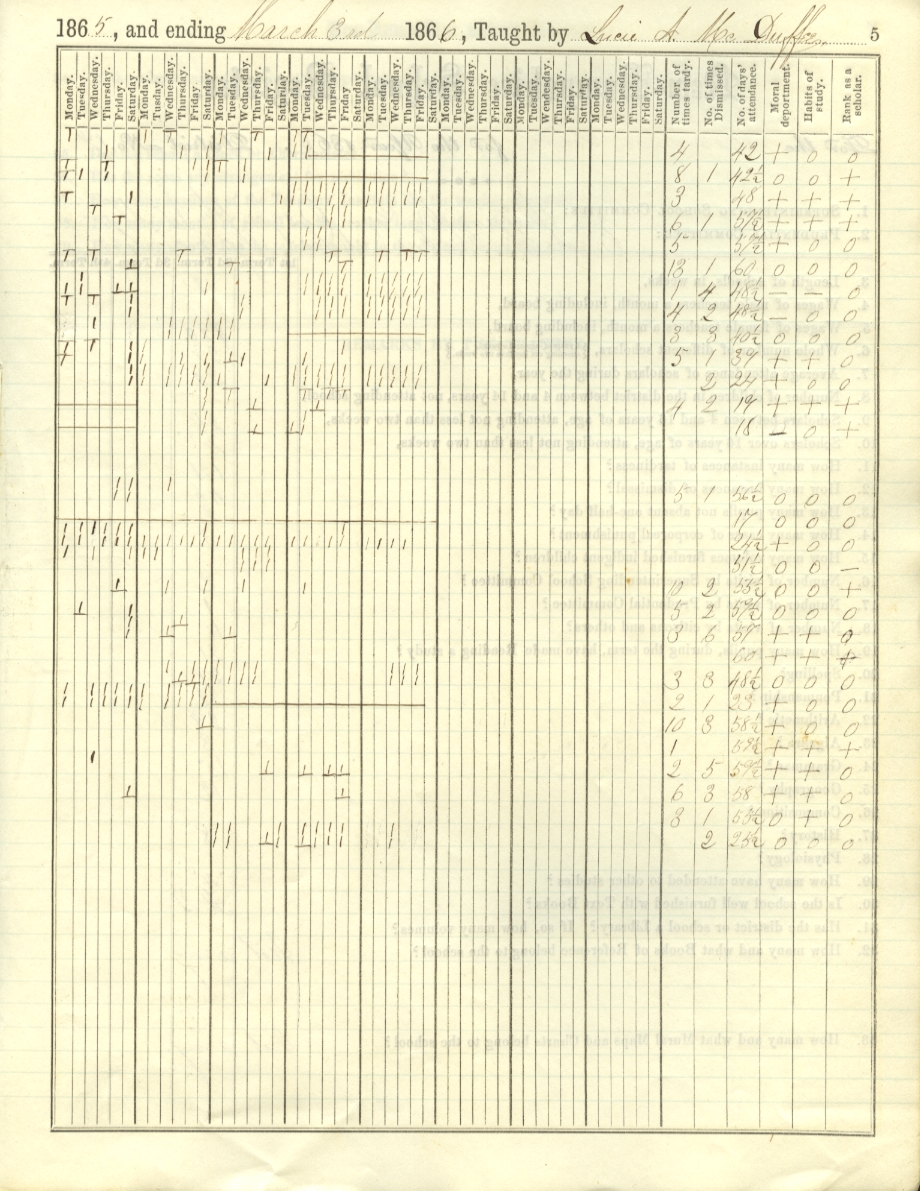 1865, and ending March 3rd 1866, Taught by Lucie A. Mc Duffee, 5
Monday. Tuesday. Wednesday. Thursday. Friday. Saturday. Monday. Tuesday. Wednesday. Thursday. Friday Saturday. Monday. Tuesday. Wednesday. Thursday. Friday. Saturday. Monday. Tuesday. Wednesday. Thursday. Friday Saturday. Monday. Tuesday. Wednesday. Thursday. Friday. Saturday. Monday. Tuesday. Wednesday. Thursday. Friday. Saturday. Monday. Tuesday. Wednesday. Thursday. Friday. Saturday. Monday. Tuesday. Wednesday. Thursday. Friday. Saturday. Number of times tardy. No. of times Dismissed. No. of days' attendance. Moral deportment. Habits of study. Rank as a scholar.
4 42 + 0 0
8 1 42½ 0 0 +
3 48 + + +
6 1 57½ + + +
5 57½ + 0 0
13 1 60 0 0 0
1 4 48½ — — 0
4 2 48½ — 0 0
3 3 40½ 0 0 0
5 1 39 + + 0
2 24 + 0 0
4 2 19 + + +
18 — 0 +
5 1 56½ 0 0 0
17 0 0 0
24½ + 0 0
51½ 0 0 —
10 2 55½ 0 0 +
5 2 57½ 0 0 0
3 6 57 + + 0
60 + + +
3 3 48½ 0 0 0
2 1 23 + 0 0
10 3 58½ + 0 0
1 59½ + + +
2 5 59½ + + 0
6 3 58 + + 0
3 1 53½ 0 + 0
2 25½ 0 0 0